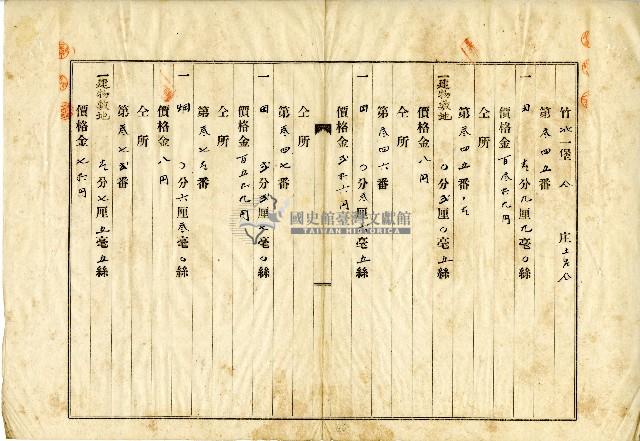 竹北一堡
庄土名
第参四五番
一田 壱分九厘九毫〇絲
價格金百参拾九円
仝所
第参四五番ノ壱
一建物敷地 〇分弐厘〇毫五絲
價格金八円
仝所
第参四六番
一田 〇分参厘〇毫五絲
價格金弐拾六円
仝所
第参四七番
一田 弐分弐厘七毫〇絲
價格金百五拾九円
仝所
第参七壱番
一畑 〇分六厘参毫〇絲
價格金八円
仝所
第参七弐番
一建物敷地 壱分七厘五毫五絲
價格金七拾円
國史館臺灣文獻館
TAIWAN HISTORICA